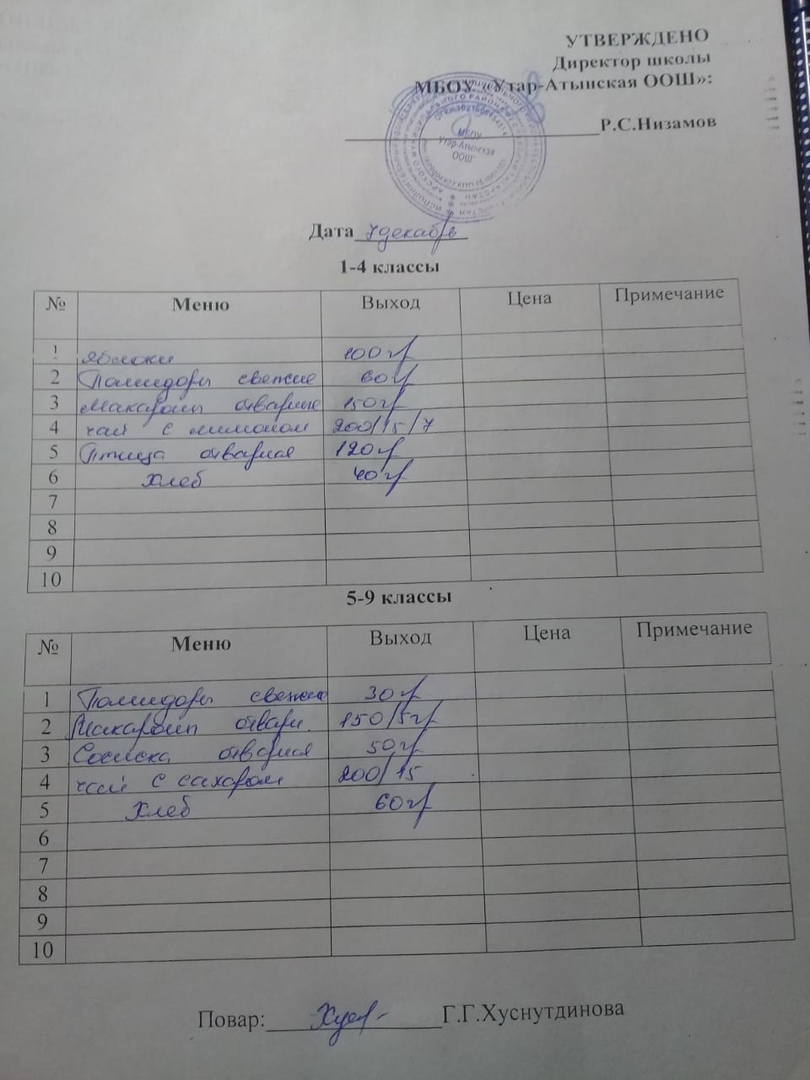 УТВЕРЖДЕНО
Директор школы
МБОУ «Утар-Атынская ООШ»:
Р.С.Низамов
МБОУ
Утар-Атынская
ООШ
Дата 7 декабрь
1-4 классы
№ Меню Выход Цена Примечание
1 Яблоки 100 гр
2 Помидоры свежие 60 гр
3 Макароны отварные 150 гр
4 чай с лимоном 200/15/7
5 Птица отварная 120 гр
6 Хлеб 40 гр
7
8
9
10
5-9 классы
№ Меню Выход Цена Примечание
1 Помидоры свежие 30 гр
2 Макароны отварн. 150/5 гр
3 Сосиска отварная 50 гр
4 чай с сахаром 200/15
5 Хлеб 60 гр
6
7
8
9
10
Повар: Г.Г.Хуснутдинова